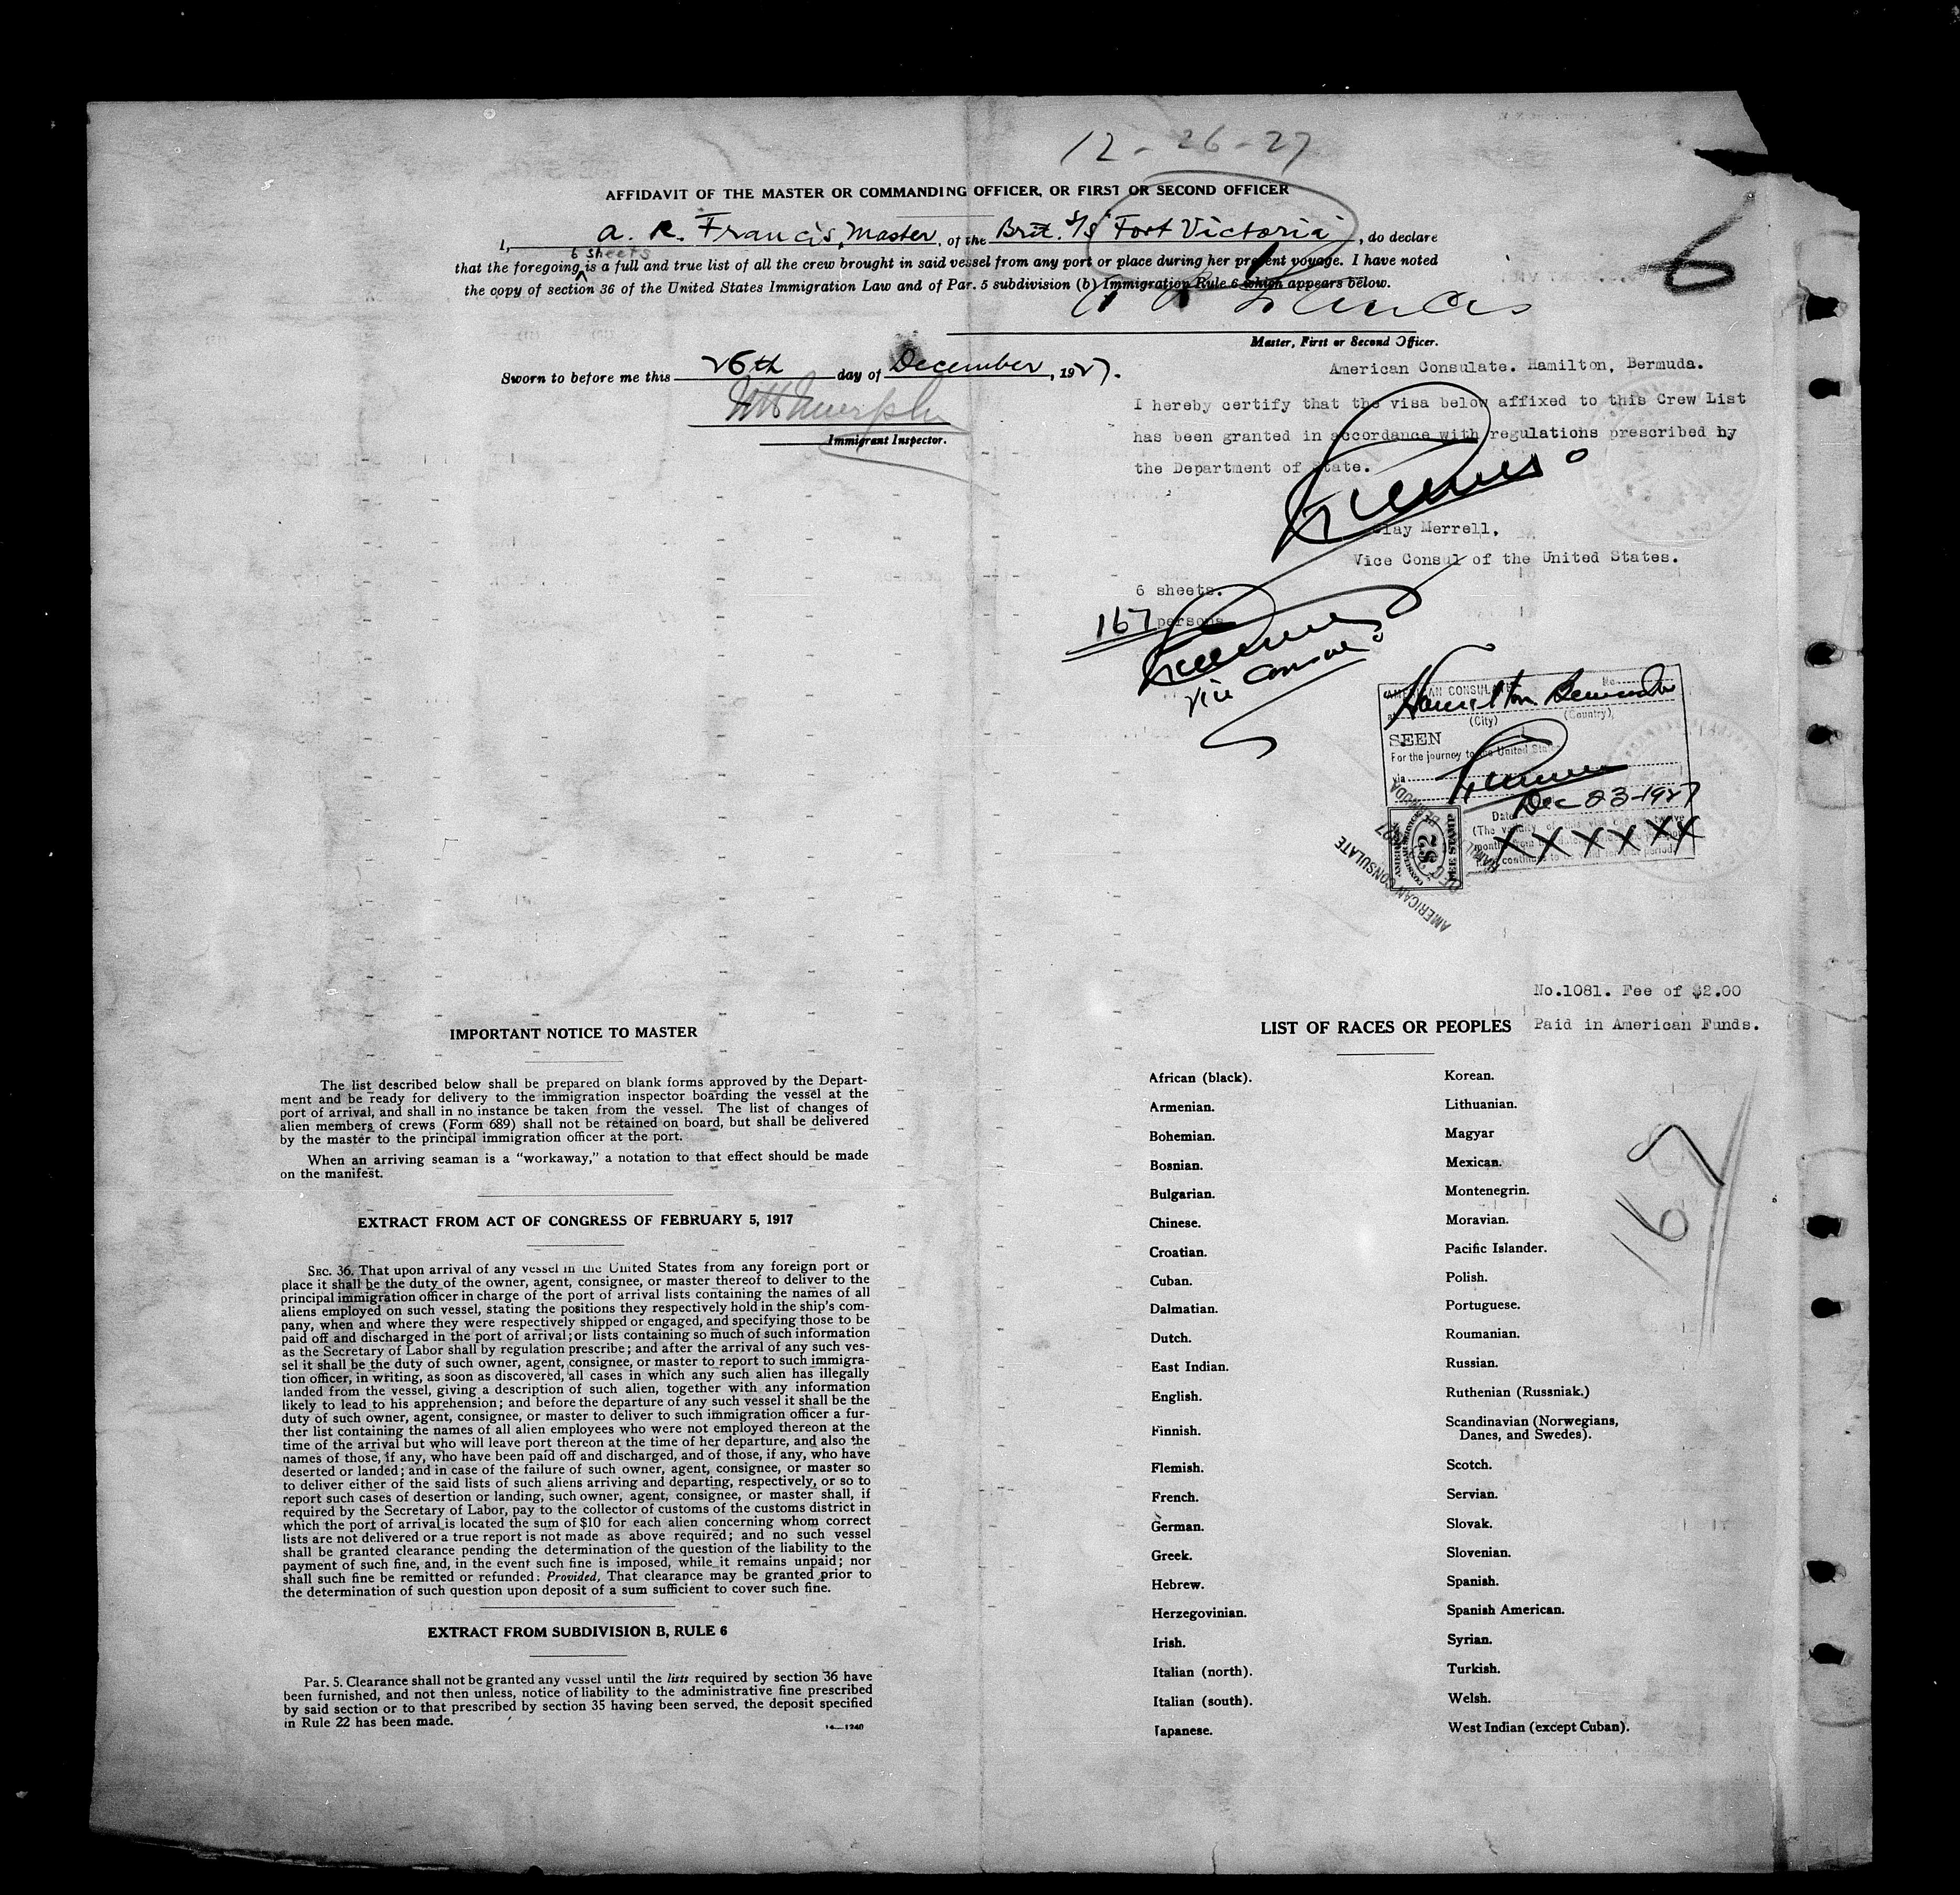 12-26-27
AFFIDAVIT OF THE MASTER OR COMMANDING OFFICER, OR FIRST OR SECOND OFFICER
I, A. R. Francis, Master, of the Brit. S/S "Fort Victoria", do declare
6 sheets
that the foregoing is a full and true list of all the crew brought in said vessel from any port or place during her present voyage. I have noted
the copy of section 36 of the United States Immigration Law and of Par. 5 subdivision (b) Immigration Rule 6 which appears below.
6
A R Francis
Master, First or Second Officer.
Sworn to before me this 26th day of December, 1927.
Immigrant Inspector.
American Consulate. Hamilton, Bermuda.
I hereby certify that the visa below affixed to this Crew List
has been granted in accordance with regulations prescribed by
the Department of State.
Clay Merrell,
Vice Consul of the United States.
6 sheets.
167 persons
Vice Consul
AMERICAN CONSULATE No.
at Hamilton Bermuda
(City) (Country)
SEEN
For the journey to the United States
via
Dec 23-1927
Date
(The validity of this visa expires twelve
months from
continues to be valid for that period.)
XXXXXXX
AMERICAN
CONSULAR SERVICE
$2
FEE STAMP
AMERICAN CONSULATE
No.1081. Fee of $2.00
Paid in American Funds.
IMPORTANT NOTICE TO MASTER
The list described below shall be prepared on blank forms approved by the Depart-
ment and be ready for delivery to the immigration inspector boarding the vessel at the
port of arrival, and shall in no instance be taken from the vessel. The list of changes of
alien members of crews (Form 689) shall not be retained on board, but shall be delivered
by the master to the principal immigration officer at the port.
When an arriving seaman is a "workaway," a notation to that effect should be made
on the manifest.
EXTRACT FROM ACT OF CONGRESS OF FEBRUARY 5, 1917
SEC. 36. That upon arrival of any vessel in the United States from any foreign port or
place it shall be the duty of the owner, agent, consignee, or master thereof to deliver to the
principal immigration officer in charge of the port of arrival lists containing the names of all
aliens employed on such vessel, stating the positions they respectively hold in the ship's com-
pany, when and where they were respectively shipped or engaged, and specifying those to be
paid off and discharged in the port of arrival; or lists containing so much of such information
as the Secretary of Labor shall by regulation prescribe; and after the arrival of any such ves-
sel it shall be the duty of such owner, agent, consignee, or master to report to such immigra-
tion officer, in writing, as soon as discovered, all cases in which any such alien has illegally
landed from the vessel, giving a description of such alien, together with any information
likely to lead to his apprehension; and before the departure of any such vessel it shall be the
duty of such owner, agent, consignee, or master to deliver to such immigration officer a fur-
ther list containing the names of all alien employees who were not employed thereon at the
time of the arrival but who will leave port thereon at the time of her departure, and also the
names of those, if any, who have been paid off and discharged, and of those, if any, who have
deserted or landed; and in case of the failure of such owner, agent, consignee, or master so
to deliver either of the said lists of such aliens arriving and departing, respectively, or so to
report such cases of desertion or landing, such owner, agent, consignee, or master shall, if
required by the Secretary of Labor, pay to the collector of customs of the customs district in
which the port of arrival is located the sum of $10 for each alien concerning whom correct
lists are not delivered or a true report is not made as above required; and no such vessel
shall be granted clearance pending the determination of the question of the liability to the
payment of such fine, and, in the event such fine is imposed, while it remains unpaid; nor
shall such fine be remitted or refunded: Provided, That clearance may be granted prior to
the determination of such question upon deposit of a sum sufficient to cover such fine.
EXTRACT FROM SUBDIVISION B, RULE 6
Par. 5. Clearance shall not be granted any vessel until the lists required by section 36 have
been furnished, and not then unless, notice of liability to the administrative fine prescribed
by said section or to that prescribed by section 35 having been served, the deposit specified
in Rule 22 has been made.
14—1240
LIST OF RACES OR PEOPLES
African (black).
Armenian.
Bohemian.
Bosnian.
Bulgarian.
Chinese.
Croatian.
Cuban.
Dalmatian.
Dutch.
East Indian.
English.
Finnish.
Flemish.
French.
German.
Greek.
Hebrew.
Herzegovinian.
Irish.
Italian (north).
Italian (south).
Japanese.
Korean.
Lithuanian.
Magyar
Mexican.
Montenegrin.
Moravian.
Pacific Islander.
Polish.
Portuguese.
Roumanian.
Russian.
Ruthenian (Russniak.)
Scandinavian (Norwegians,
Danes, and Swedes).
Scotch.
Servian.
Slovak.
Slovenian.
Spanish.
Spanish American.
Syrian.
Turkish.
Welsh.
West Indian (except Cuban).
167